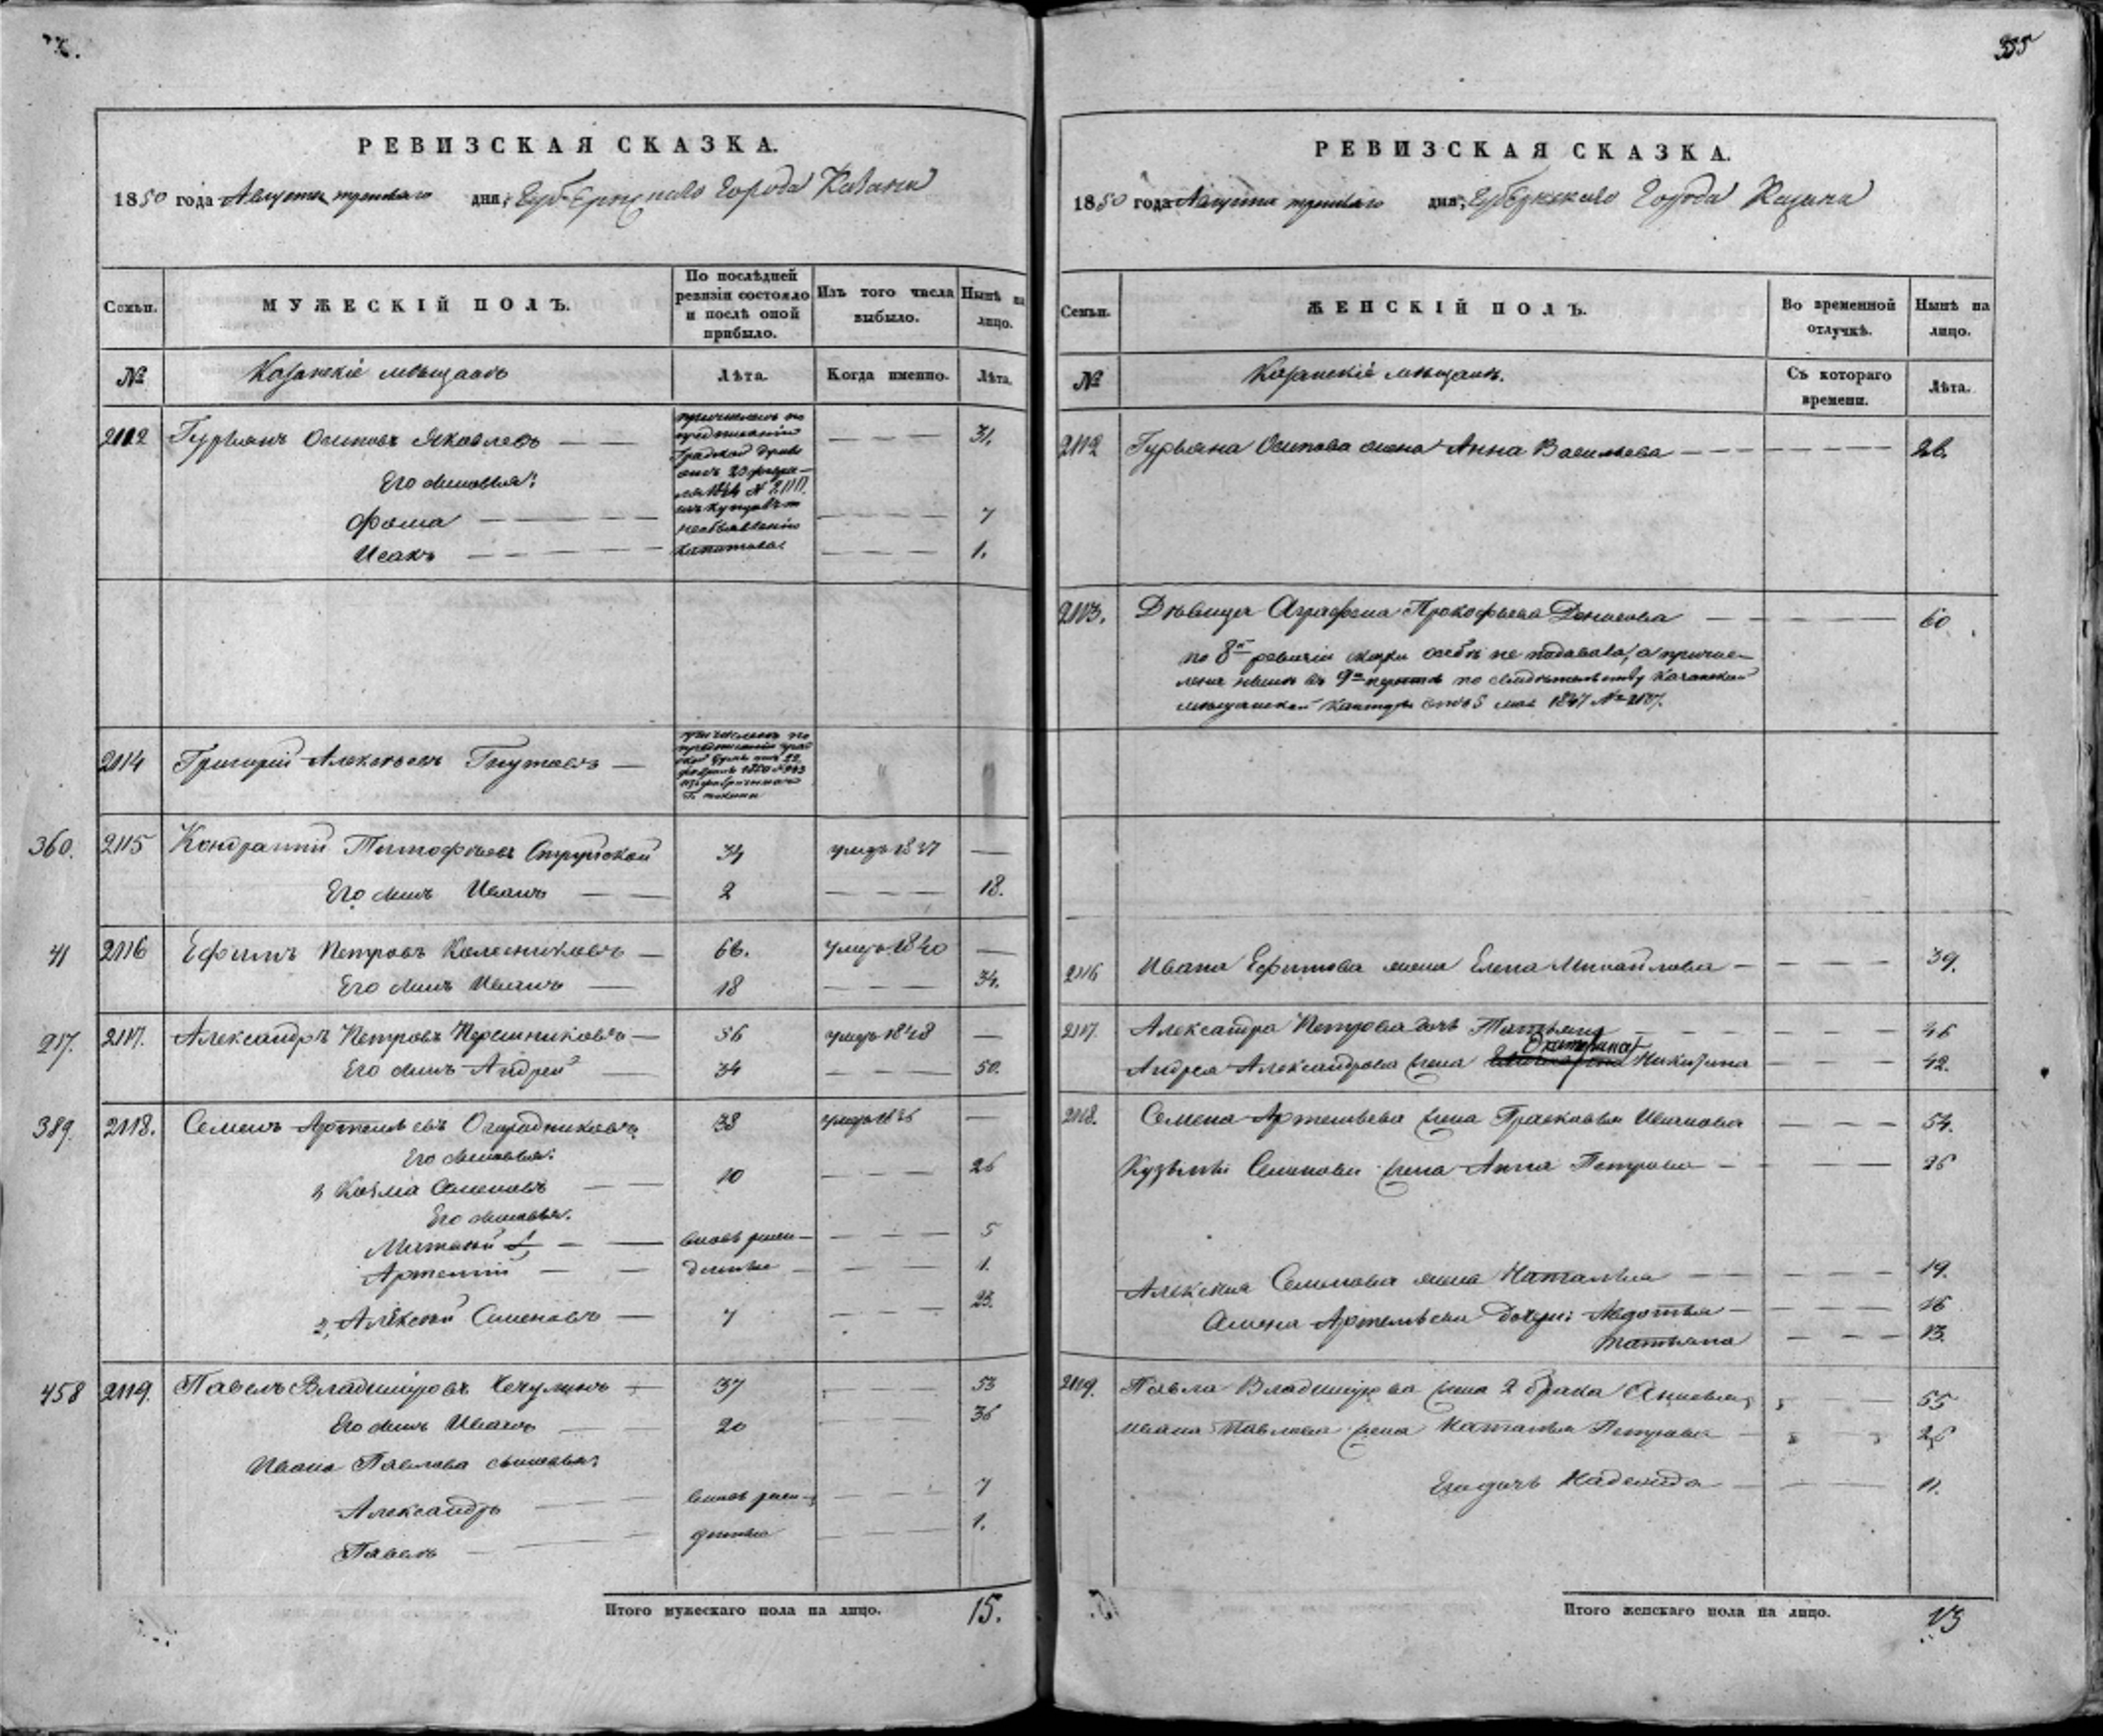 355
РЕВИЗСКАЯ СКАЗКА.
1850 года Августа третьяго дня, Губернскаго Города Казани
Семьи. МУЖЕСКІЙ ПОЛЪ. По послѣдней ревизіи состояло и послѣ оной прибыло. Изъ того числа выбыло. Нынѣ на лицо.
№ Казанскіе мѣщане Лѣта. Когда именно. Лѣта.
2112 Гурьянъ Осиповъ Яковлевъ 31.
причисленъ по
предписанію
Градской Думы
отъ 23 февра-
ля 1844 №
изъ купцовъ по
необъявленію
капитала
Его сыновья:
Фома 7
Исакъ 1.
2114 Григорій Алексѣевъ
причисленъ по
предписанію град
ской Думы отъ 22
февраля 1850 № 943
360. 2115 Кондратій Тимофѣевъ Струйской 34 умеръ 1837 —
Его сынъ Иванъ 2 18.
41 2116 Ефимъ Петровъ Колесниковъ 66. умеръ 1840 —
Его сынъ Иванъ 18 34.
217. 2117. Александръ Петровъ 56 умеръ 1848 —
Его сынъ Андрей 34 50.
389. 2118. Семенъ Артемьевъ Огородниковъ 38 умеръ 1836 —
Его сыновья:
1 Козма Семеновъ 10 26
Его сыновья.
Матвѣй вновь рож- 5
Артемій денные 1.
2, Алексѣй Семеновъ 7 23.
458 2119. Павелъ Владиміровъ Чечулинъ 37 53
Его сынъ Иванъ 20 36
Ивана Павлова сыновья:
Александръ вновь рож- 7
Павелъ денные 1.
Итого мужескаго пола на лицо. 15.
РЕВИЗСКАЯ СКАЗКА.
1850 года Августа третьяго дня, Губернскаго Города Казани
Семьи. ЖЕНСКІЙ ПОЛЪ. Во временной отлучкѣ. Нынѣ на лицо.
№ Казанскіе мѣщане. Съ котораго времени. Лѣта.
2112 Гурьяна Осипова жена Анна Васильева 26.
2113. Дѣвица Аграфена Прокофьева Денисова 60
по 8й ревизіи сказки о себѣ не подавала, а причис-
лена нынѣ въ 9ю по свидѣтельству Казанской
мѣщанской Конторы отъ 5 мая 1847 № 2187.
2116 Ивана Ефимова жена Елена Михайлова 39.
2117. Александра Петрова дочь Татьяна 46
Екатерина
Андрея Александрова жена Никитина 42.
2118. Семена Артемьева жена Прасковья Иванова 54.
Кузьмы Семенова жена Анна Петрова 26
Алексѣя Семенова жена Наталья 19.
Семена Артемьева дочери: Авдотья 16
Татьяна 13.
2119. Павла Владимірова жена 2 брака 55
Ивана Павлова жена Наталья Петрова 26
Его дочь Надежда 11.
Итого женскаго пола на лицо. 13